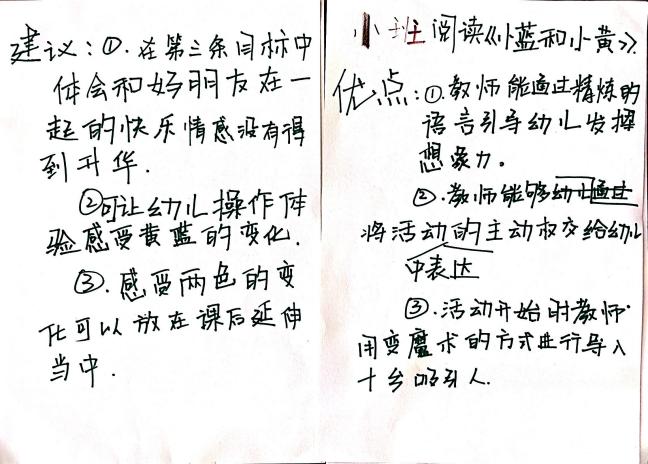 小班阅读《小蓝和小黄》.
优点:①.教师能通过精炼的
语言引导幼儿发挥
想象力。
②.教师能够幼儿通过
将活动的主动权交给幼儿
中表达
③.活动开始时教师
用变魔术的方式进行导入
十分吸引人.
建议:①.在第三条目标中
体会和好朋友在一
起的快乐情感没有得
到升华.
②可让幼儿操作体
验感受黄蓝的变化.
③.感受两色的变
化可以放在课后延伸
当中.